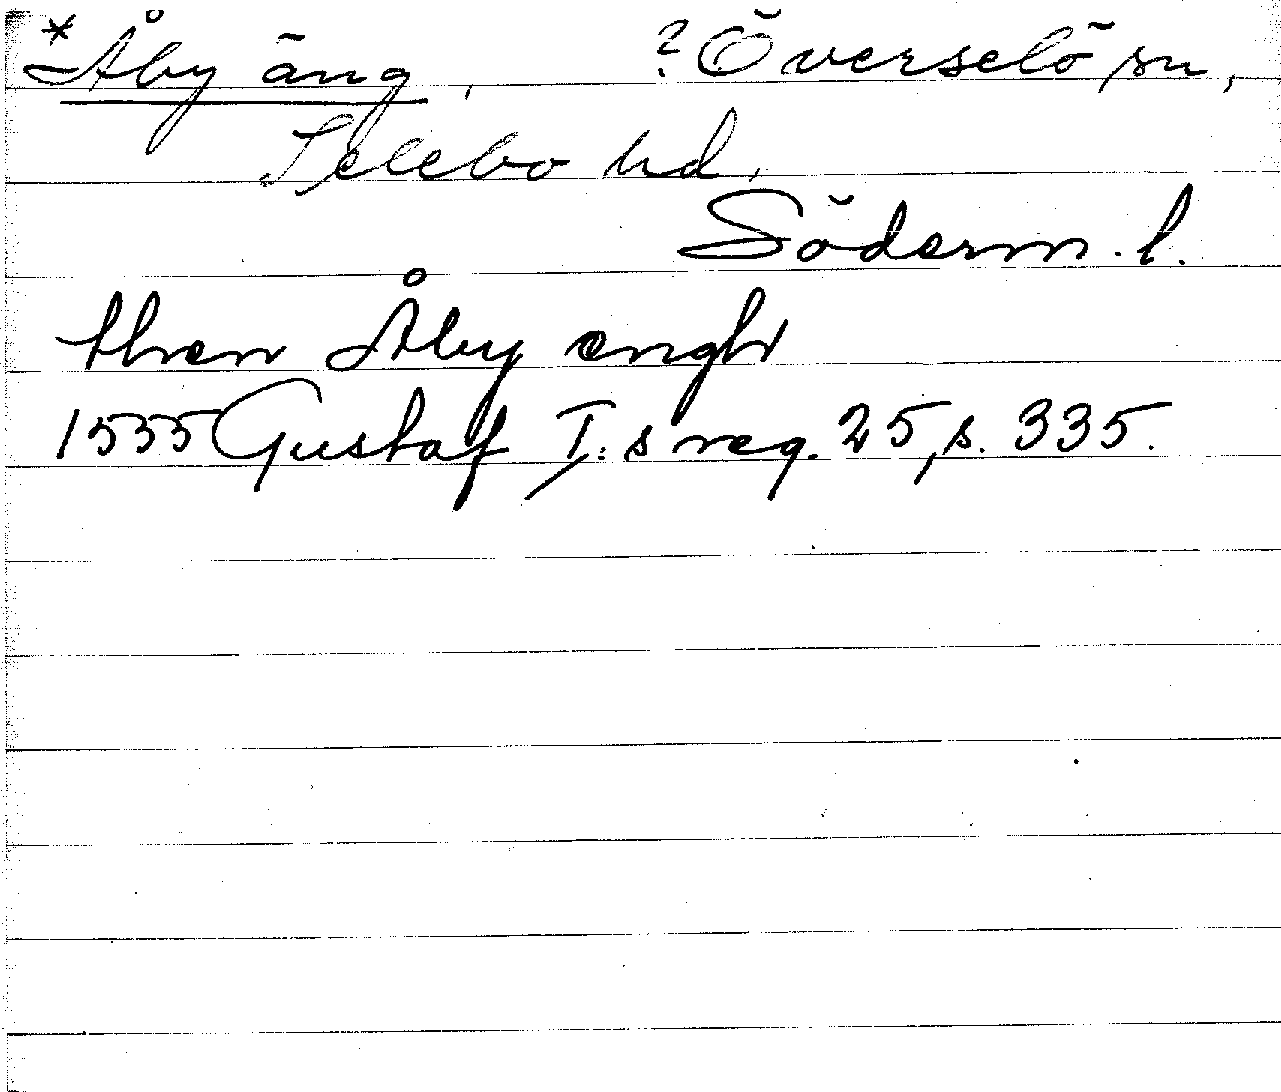 *Åby äng, ?Överselö sn,
Selebo hd,
Söderm. l.
then Åby engh
1535 Gustaf I:s reg. 25, s. 335.